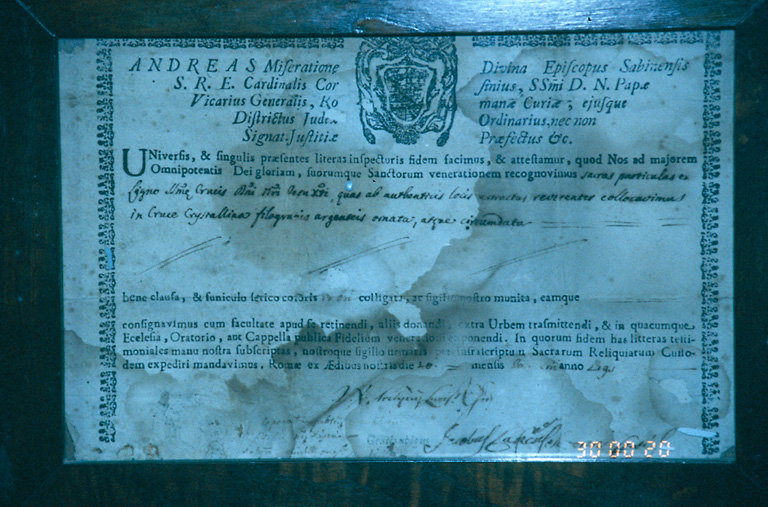 ANDREAS Miseratione Divina Episcopus Sabinensis
S. R. E. Cardinalis Corsinius, SSmi D. N. Papæ
Vicarius Generalis, Romanæ Curiæ, ejusque
Districtus Judex Ordinarius, nec non
Signat. Justitiæ Præfectus &c.
UNiversis, & singulis præsentes literas inspecturis fidem facimus, & attestamur, quod Nos ad majorem
Omnipotentis Dei gloriam, suorumque Sanctorum venerationem recognovimus sacras particulas ex
Ligno Crucis quas ab authenticis locis extractas reverenter collocavimus
in Cruce Crystallina filogranis argenteis ornata, atque circumdata
bene clausa, & funiculo serico coloris colligata, ac sigillo nostro munita, eamque
consignavimus cum facultate apud se retinendi, aliis donandi, extra Urbem trasmittendi, & in quacumque
Ecclesia, Oratorio, aut Cappella publica Fidelium venerationi exponendi. In quorum fidem has litteras testi-
moniales manu nostra subscriptas, nostroque sigillo firmatas per infrascriptum Sacrarum Reliquiarum Custo-
dem expediri mandavimus. Romæ ex Ædibus nostris die mensis anno
30 00 20